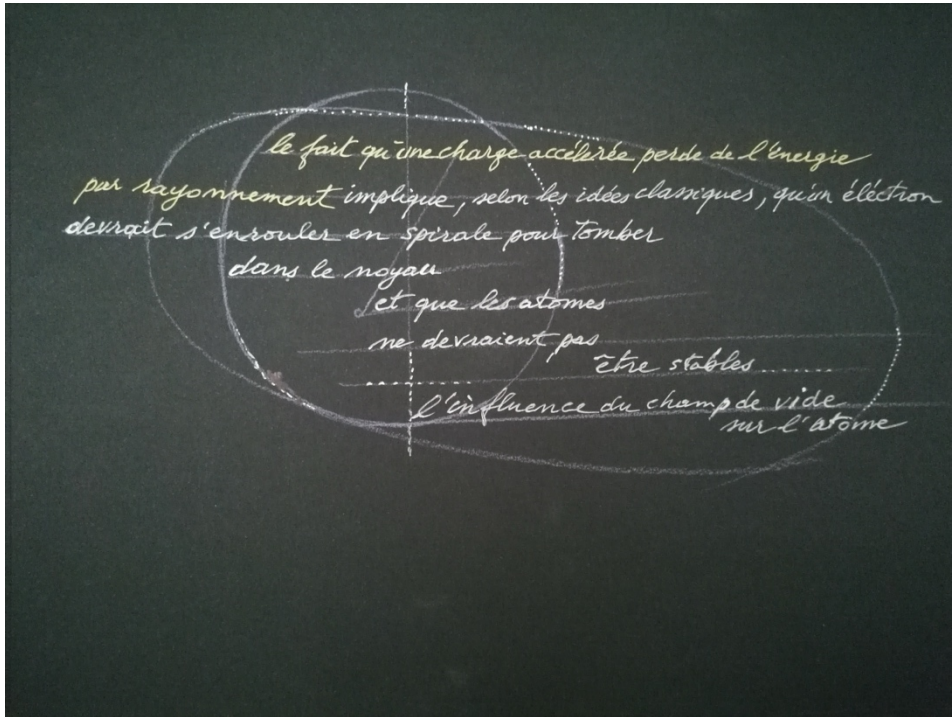 le fait qu'une charge accélerée perde de l'énergie
par rayonnement implique, selon les idées classiques, qu'un éléctron
devrait s'enrouler en spirale pour tomber
dans le noyau
et que les atomes
ne devraient pas
être stables ........
..........
l'influence du champ de vide
sur l'atome